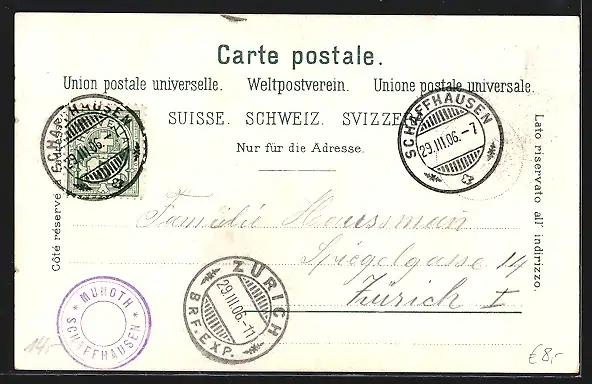 Carte postale.
Union postale universelle. Weltpostverein. Unione postale universale.
SUISSE. SCHWEIZ. SVIZZERA.
Nur für die Adresse.
Côté réservé à l'adresse.
Lato riservato all' indirizzo.
SCHAFFHAUSEN
29.III.06.
SCHAFFHAUSEN
29.III.06.-7
Familie Haussmann
Spiegelgasse 14
Zürich I
ZÜRICH
29.III.06.-11
BRF.EXP.
MUNOTH
SCHAFFHAUSEN
14.-
€8,-